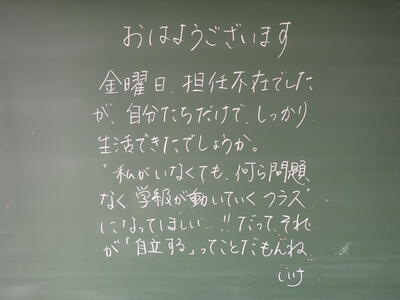 おはようございます
金曜日、担任不在でした
が、自分たちだけで、しっかり
生活できたでしょうか。
"私がいなくても、何ら問題
なく学級が動いていくクラス"
になってほしい…!!だって、それ
が「自立する」ってことだもんね